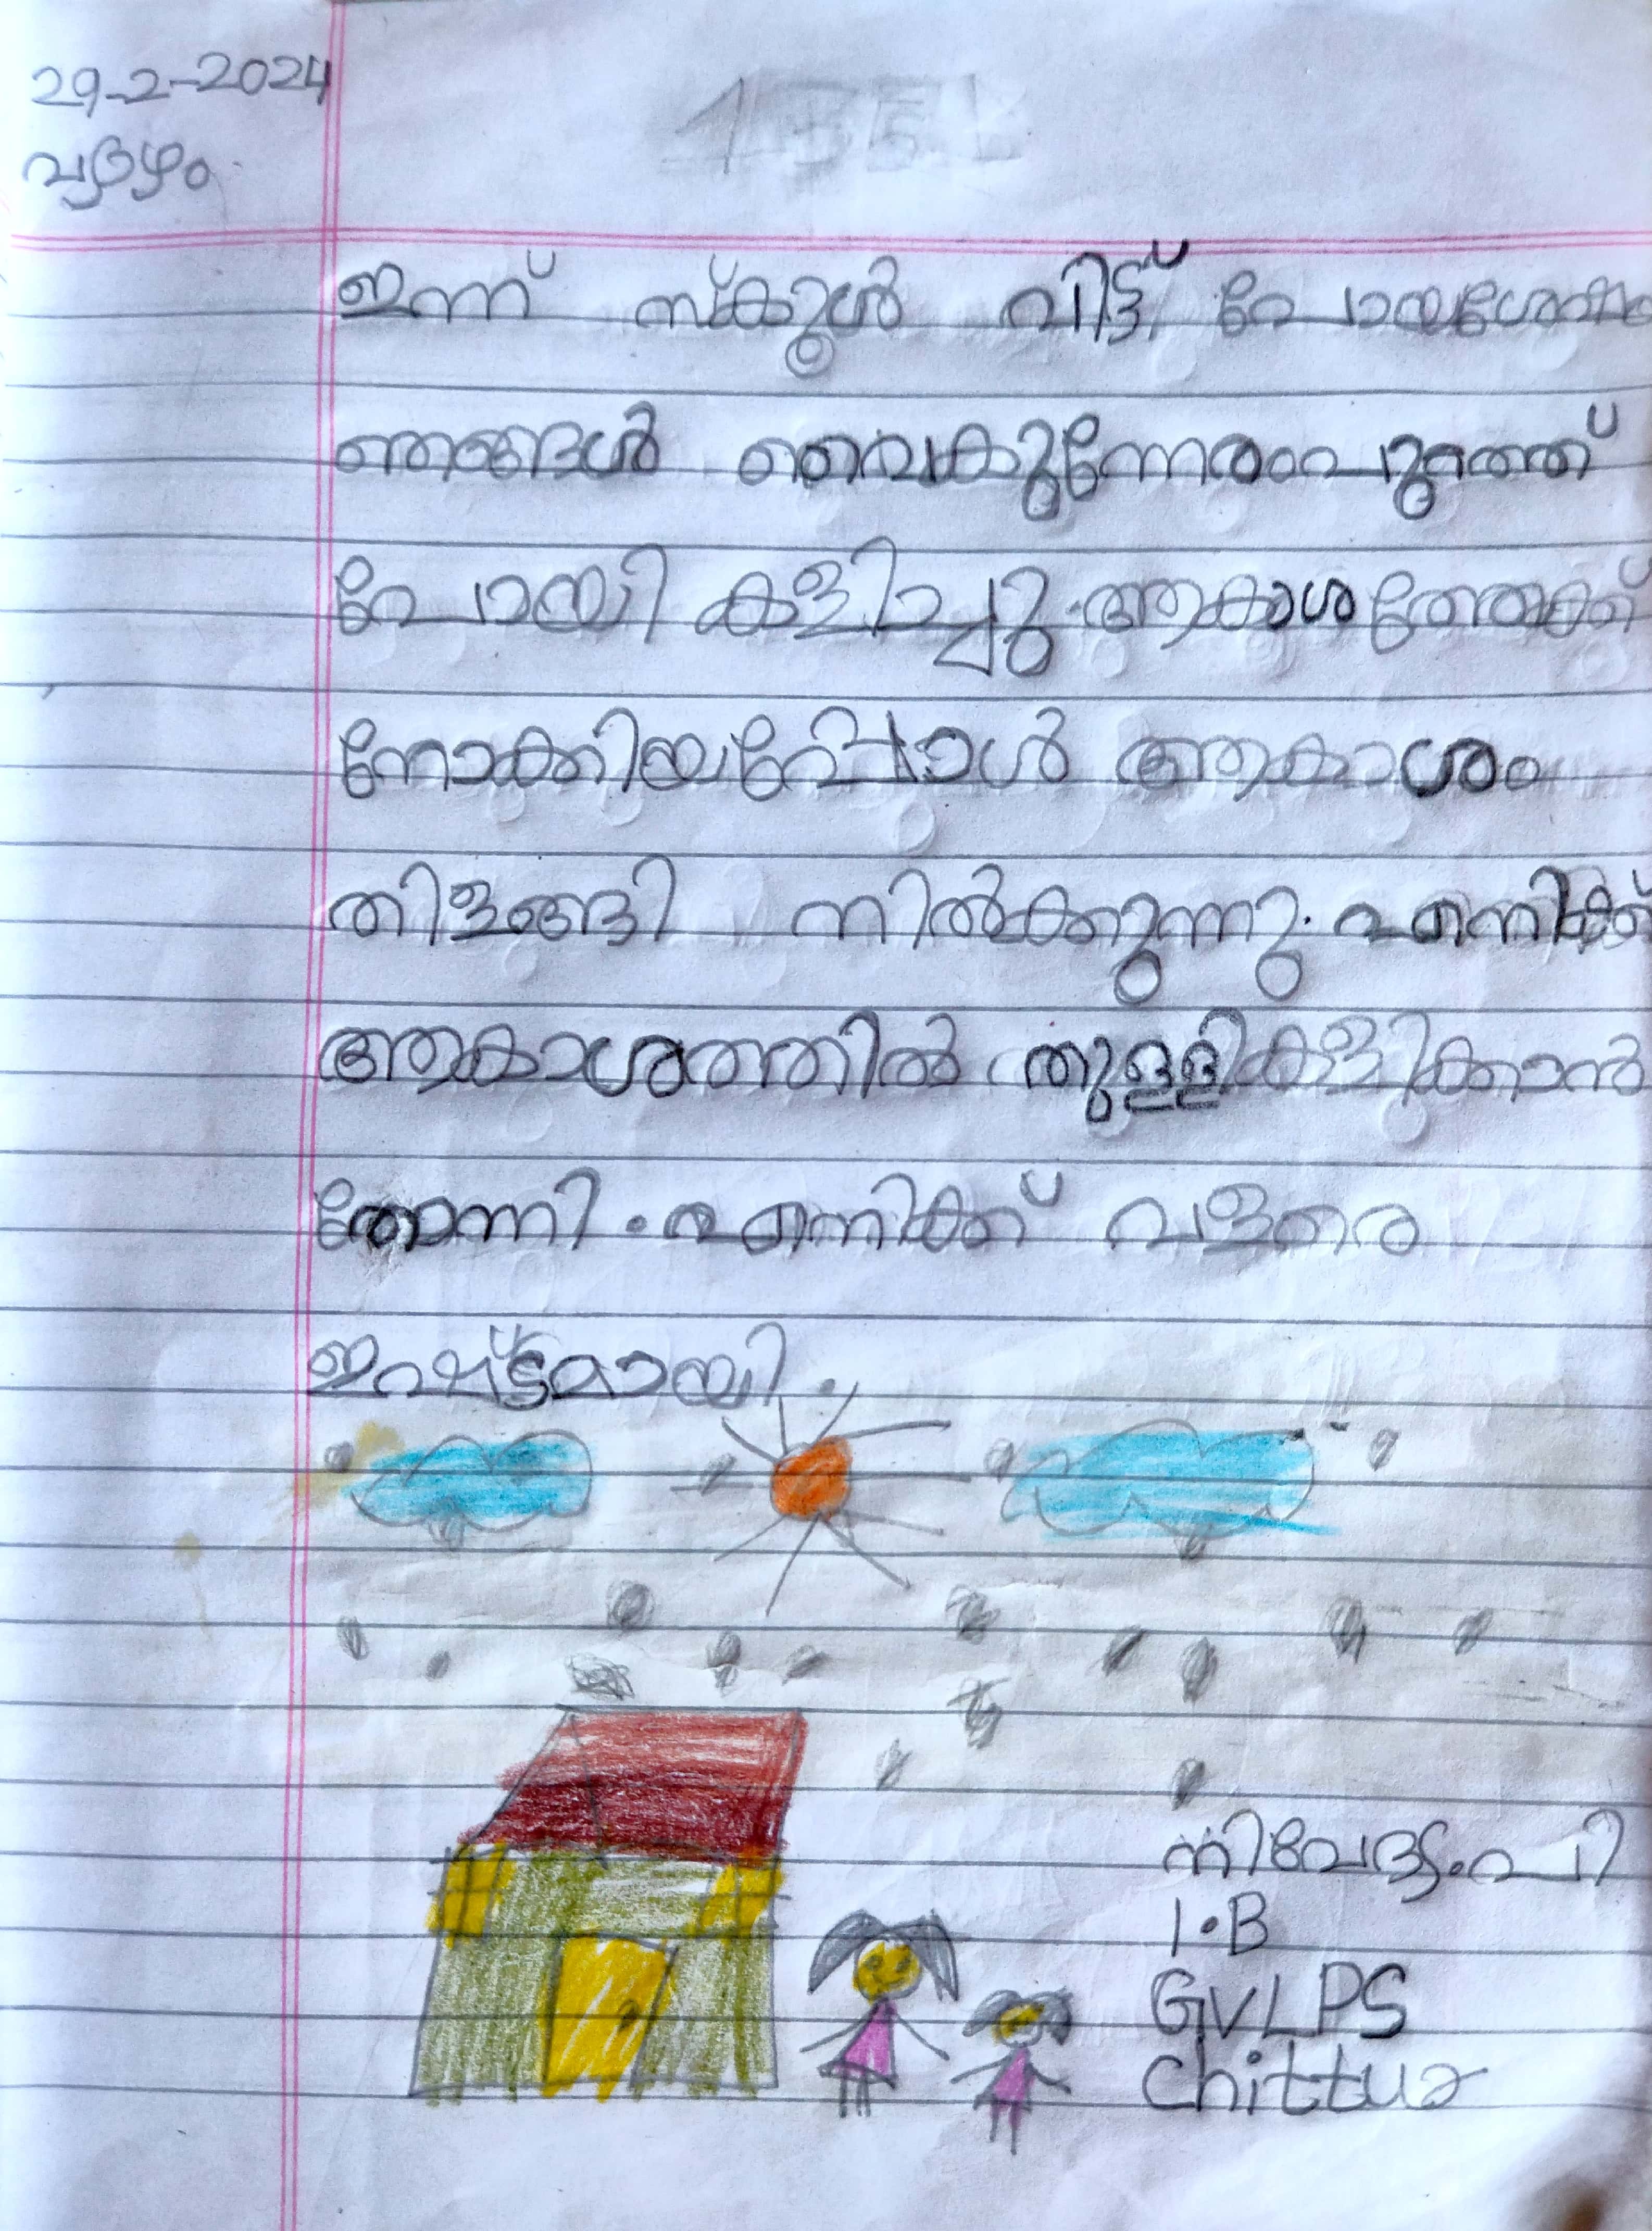 29-2-2024
വ്യാഴം
ഇന്ന് സ്കൂൾ വിട്ട് പോയശേഷം
ഞങ്ങൾ വൈകുന്നേരം പുറത്ത്
പോയി കളിച്ചു. ആകാശത്തേക്ക്
നോക്കിയപ്പോൾ ആകാശം
തിളങ്ങി നിൽക്കുന്നു. എനിക്ക്
ആകാശത്തിൽ തുള്ളികളിക്കാൻ
തോന്നി. എനിക്ക് വളരെ
ഇഷ്ട്ടമായി.
നിവേദ്യ.പി
1.B
GVLPS
Chittur